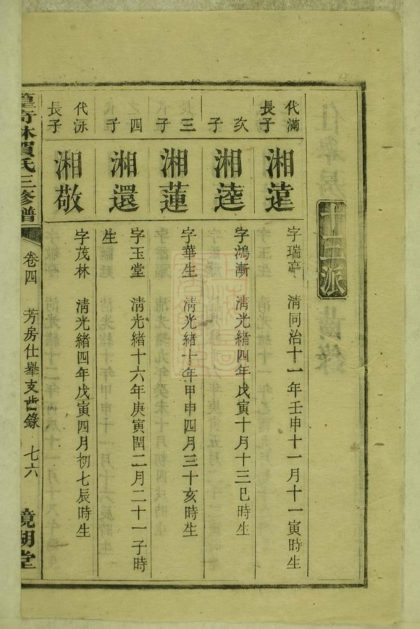 十三派
代滿
長子
湘蓮
字瑞亭 清同治十一年壬申十一月十一寅時生
次
子
湘逵
字鴻漸 清光緒四年戊寅十月十三巳時生
三
子
湘蓮
字華生 清光緒十年甲申四月三十亥時生
四
子
湘還
字玉堂 清光緒十六年庚寅閏二月二十一子時
生
代泳
長子
湘敬
字茂林 清光緒四年戊寅四月初七辰時生
林賀氏三修譜
卷四 芳房仕舉支世錄 七六
鏡湖堂